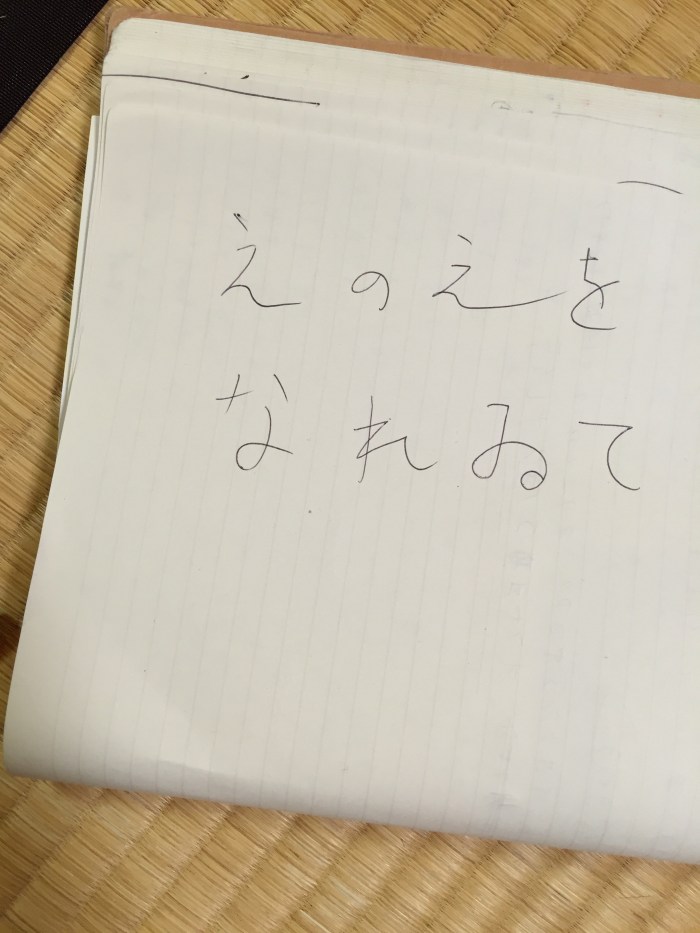 えのえを
なれゐて